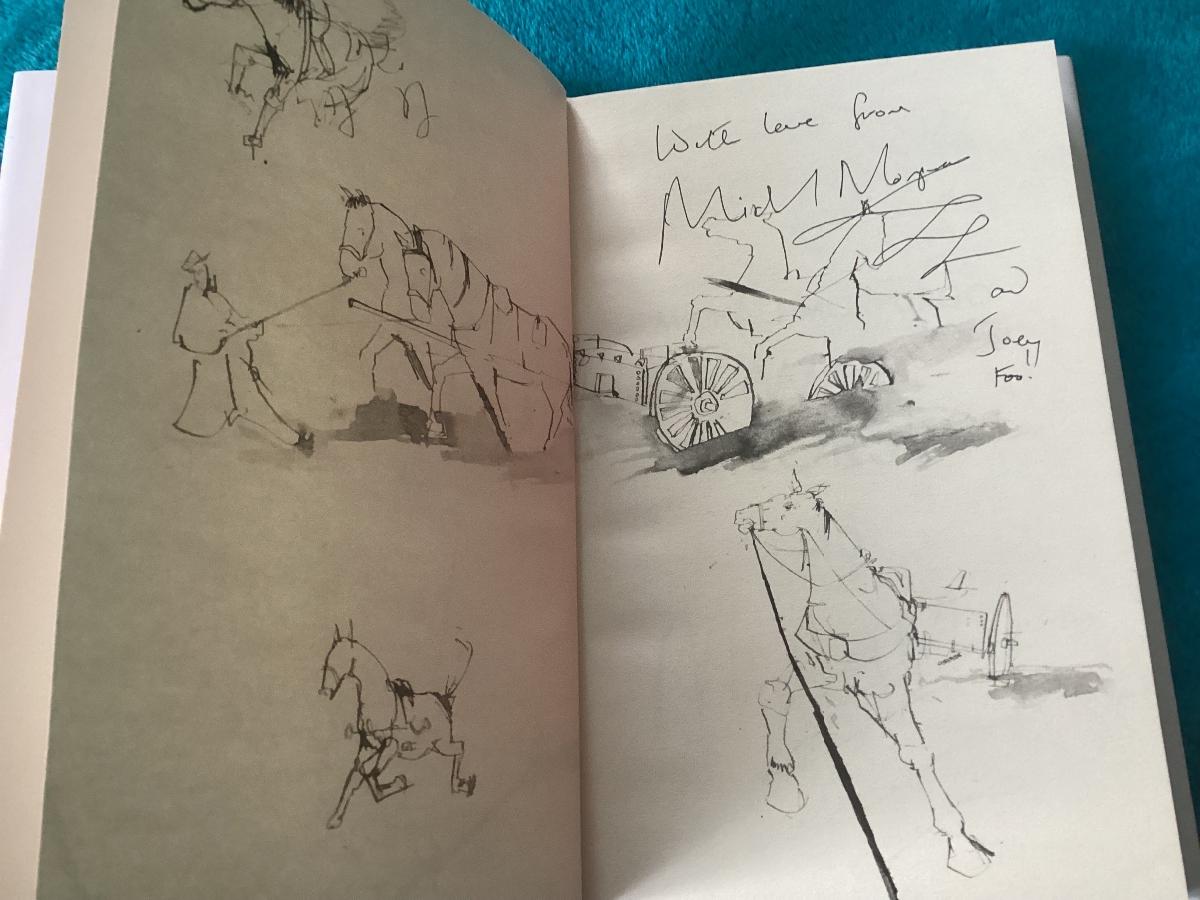 With love from
Michael Morpurgo
and
Joey
too!